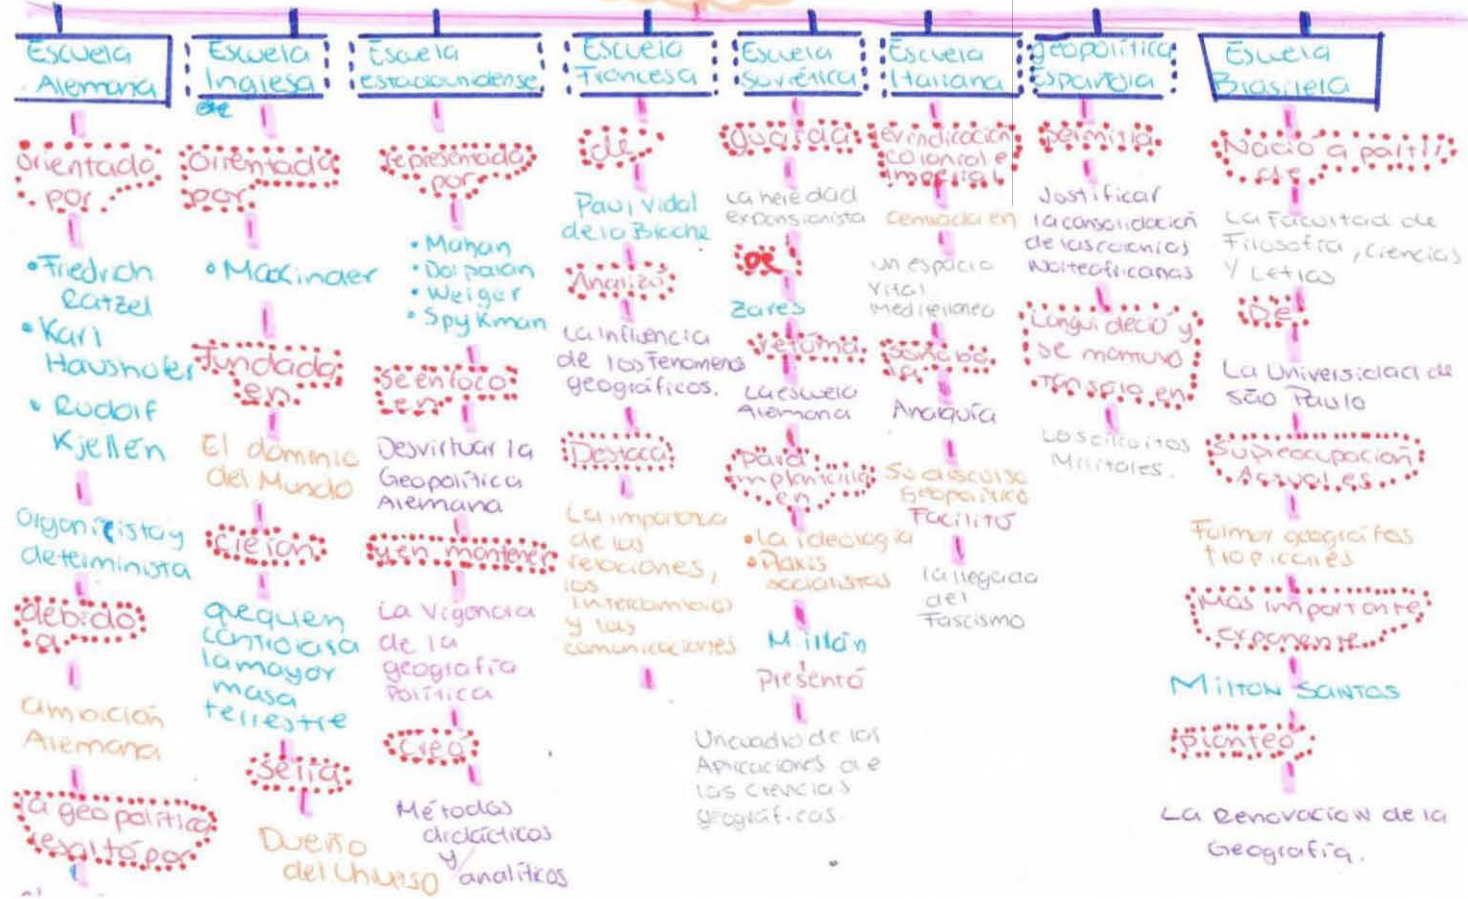 Escuela
Alemana
orientado
por
• Fiedrich
Ratzel
• Karl
Haushofer
• Rudolf
Kjellén
Organicista y
determinista
debido
a
ambición
Alemana
la geopolítica
resaltó por
Escuela
Inglesa
Orientada
por
• Mackinder
fundada
en
El dominio
del Mundo
Creían
que quien
controlasa
la mayor
masa
terrestre
Sería
Dueño
del Universo
Escuela
estadounidense
representada
por
• Mahan
• Weiger
• Spykman
Se enfocó
en
Desvirtuar la
Geopolítica
Alemana
y en mantener
La Vigencia
de la
geografía
Política
Creó
Métodos
didácticos
y
analíticos
Escuela
Francesa
de
Paul Vidal
de la Blache
Analizó
La influencia
de los fenomenos
geográficos.
Destaca
La importancia
de las
relaciones,
los
intercambios
y las
comunicaciones
Escuela
Soviética
guarda
La heredad
expansionista
de
Zares
retoma
La escuela
Alemana
para
implantarla
en
• La ideología
• Praxis
socialistas
Millán
Presentó
Un cuadro de las
Aplicaciones de
las ciencias
geográficas.
Escuela
Italiana
evindicación
colonial e
imperial
Centrada en
un espacio
vital
Mediterraneo
Soñaba
la
Anarquía
Su discurso
Geopolítico
Facilitó
la llegada
del
Fascismo
geopolítica
Española
permitía
Justificar
la consolidación
de las colonias
Norteafricanas
Languideció y
se mantuvo
tan solo en
Los círculos
Militares.
Escuela
Brasilera
Nació a partir
de
La Facultad de
Filosofía, Ciencias
y Letras
De
La Universidad de
São Paulo
Su preocupación
Actual es
Formar geográfos
tropicales
Más importante
exponente
Milton Santos
planteó
La Renovación de la
Geografía.